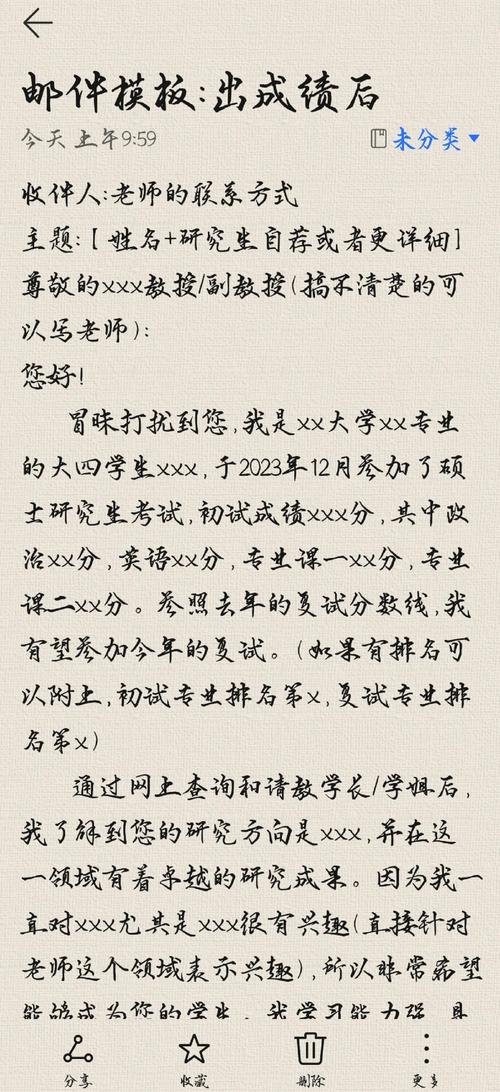 邮件模板:出成绩后
今天 上午9:59
未分类
收件人:老师的联系方式
主题:[ 姓名+研究生自荐或者更详细]
尊敬的xxx教授/副教授(搞不清楚的可
以写老师):
您好!
冒昧打扰到您,我是xx大学xx专业
的大四学生xxx,于2023年12月参加了硕
士研究生考试,初试成绩xxx分,其中政
治xx分,英语xx分,专业课一xx分,专业
课二xx分。参照去年的复试分数线,我
有望参加今年的复试。(如果有排名可
以附上,初试专业排名第x,复试专业排
名第x)
通过网上查询和请教学长/学姐后,
我了解到您的研究方向是xxx,并在这
一领域有着卓越的研究成果。因为我一
直对xxx尤其是xxx很有兴趣(直接针对
老师这个领域表示兴趣),所以非常希望
能够成为您的学生。我学习能力强,具
分享
收藏
删除
更多